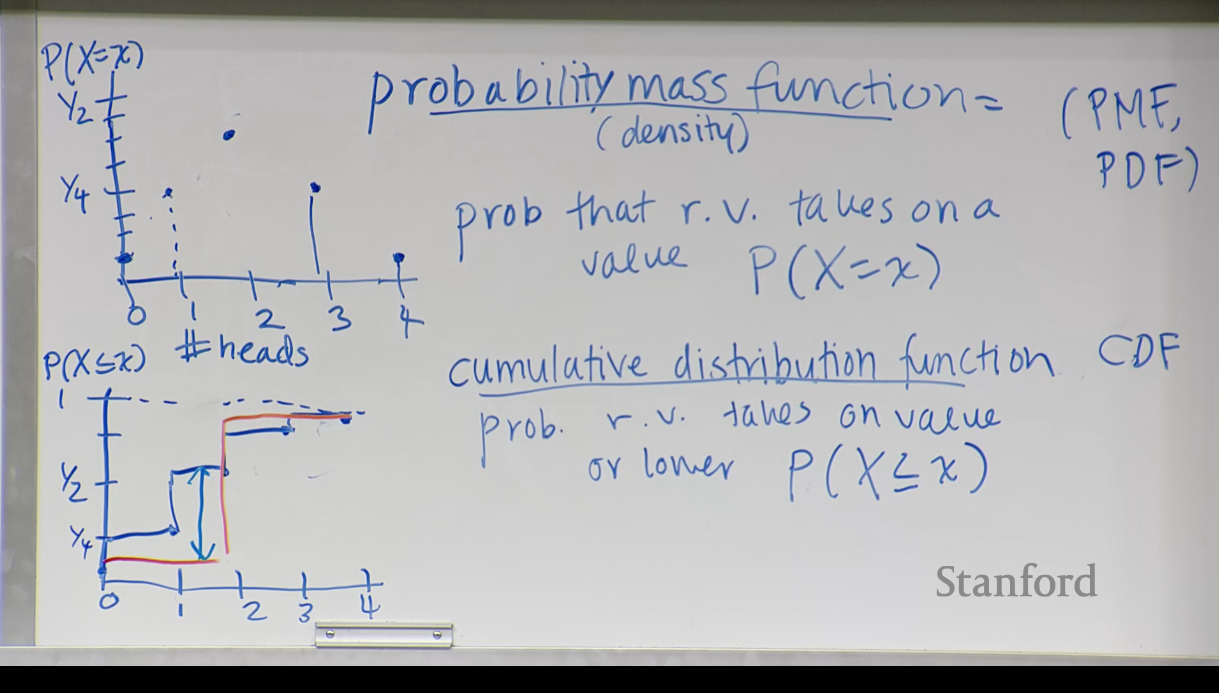 P(X=x)
1/2
1/4
0 1 2 3 4
# heads
probability mass function = (PMF,
(density)
PDF)
prob that r.v. takes on a
value P(X=x)
P(X≤x)
1
1/2
1/4
0 1 2 3 4
cumulative distribution function CDF
prob. r.v. takes on value
or lower P(X≤x)
Stanford